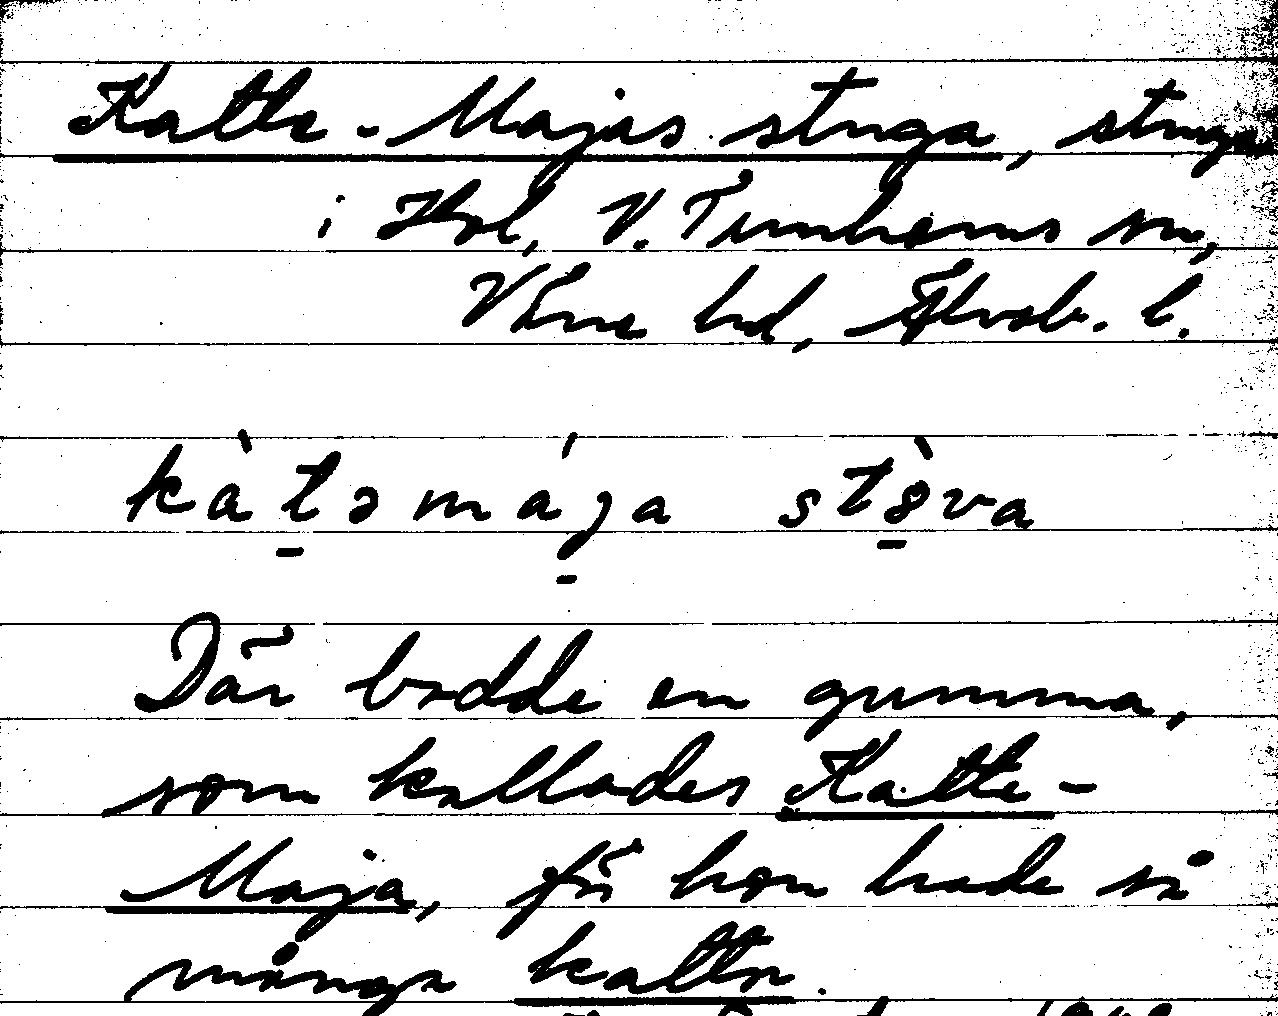 Katte-Majas stuga, stuga
i Hol, V. Tunhems sn,
Väne hd, Älvsb. l.
kàtəmája stòva
Där bodde en gumma,
som kallades Katte-
Maja, för hon hade så
många kattor.